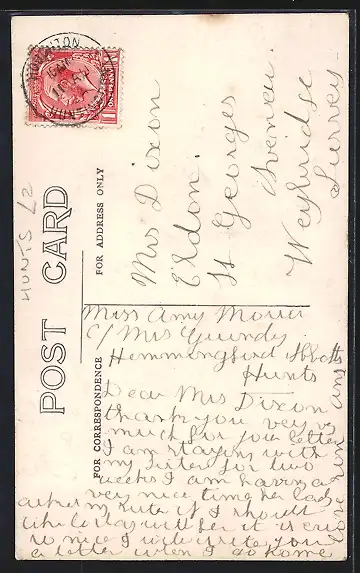 POST CARD
FOR ADDRESS ONLY
FOR CORRESPONDENCE
HUNTS £2
Mrs Dixon
Eldon.
St Georges
Avenue.
Weybridge
Surrey
Miss Amy
c/ Mrs Gundy
Hemmingford Abbotts
Hunts
Dear Mrs Dixon
thank you very
much for your letter
I am staying with
my sister for two
weeks I am having a
very nice time her lady
if I should
like to stay with her it is
so nice I will write you
a letter when I go home
love from Amy